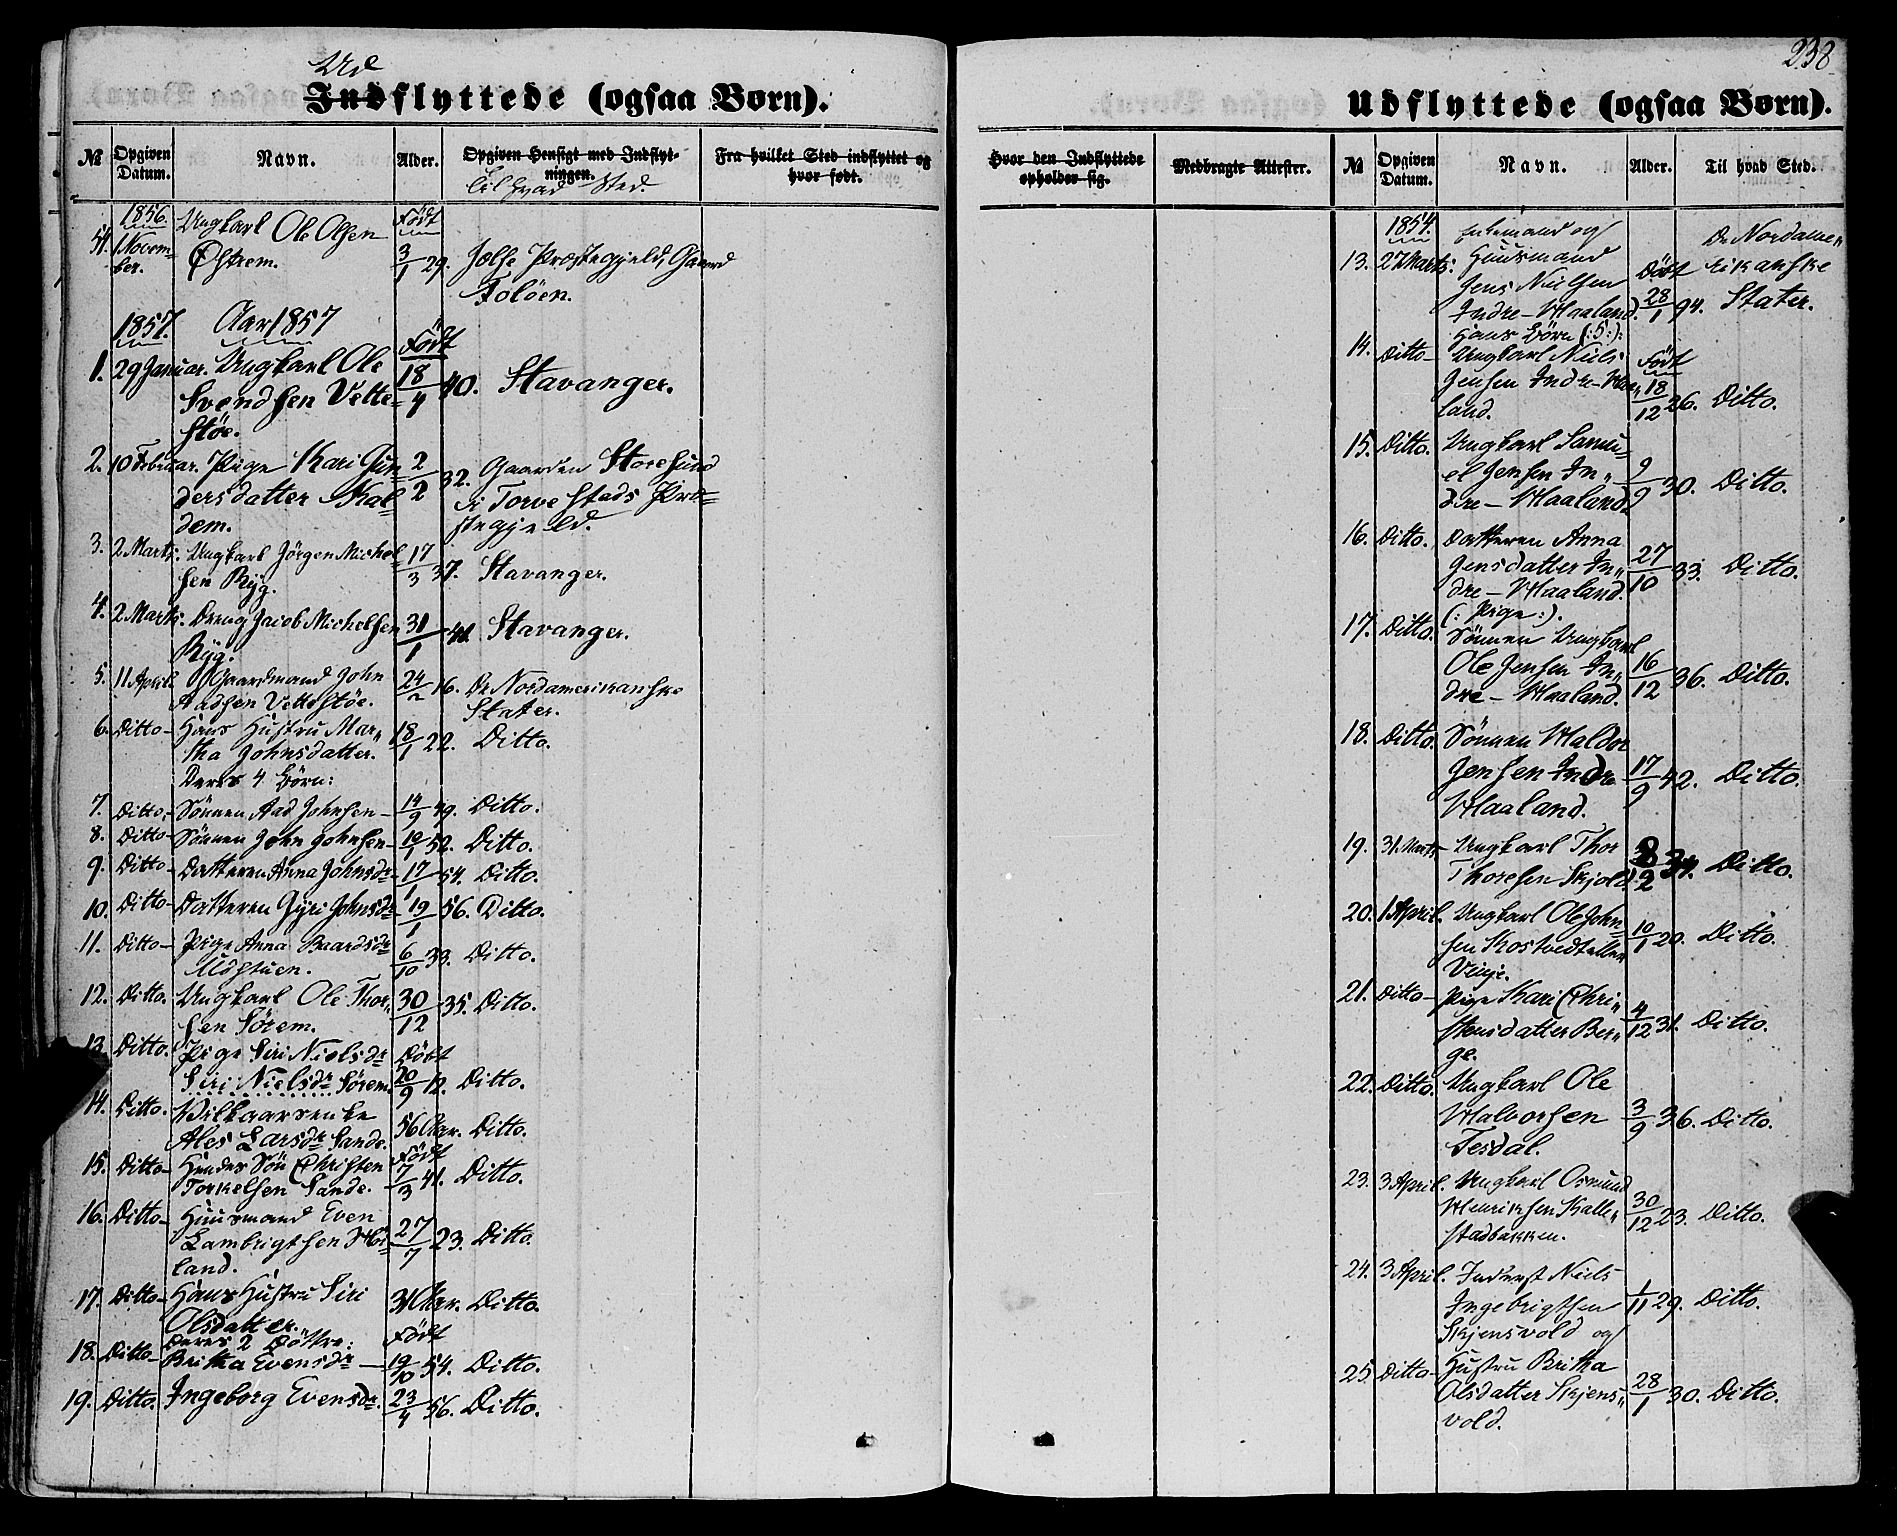 238
Ud
Indflyttede (ogsaa Børn).
№ Opgiven Datum. Navn. Alder. Opgiven Hensigt med Indflytningen. Fra hvilket Sted indflyttet og hvor født.
Til hvad Sted.
1856. Ungkarl Ole Olsen Født
51. 1 Novem-
ber. Østrem. 3/1 29. Jelse Præstegjeld, Gaard
Foløen.
1857. Aar 1857
Født
1. 29 Januar. Ungkarl Ole
Svendsen Vette- 18/4 40. Stavanger.
støe.
2. 10 Februar. Pige Kari Gun-
dersdatter Kal- 2/2 32. Gaarden Storesund
dem. i Torvestads Præ-
stegjeld.
3. 2 Marts. Ungkarl Jörgen Michel-
sen Ryg. 17/3 37. Stavanger.
4. 2 Marts. Dreng Jacob Michelsen
Ryg. 31/1 41. Stavanger.
5. 11 April. Gaardmand John
Aadsen Vettestöe. 24/2 16. De Nordamerikanske
Stater.
6. Ditto- Hans Hustru Mar-
tha Johnsdatter. 18/1 22. Ditto.
Deres 4 Börn:
7. Ditto- Sönnen Aad Johnsen- 14/9 49. Ditto.
8. Ditto- Sönnen John Johnsen- 10/1 52. Ditto.
9. Ditto- Datteren Anna Johnsdr 17/1 54. Ditto.
10. Ditto- Datteren Gyri Johnsdr 19/1 56. Ditto.
11. Ditto- Pige Anna Baardsdr
Udstuen. 6/10 33. Ditto.
12. Ditto. Ungkarl Ole Thor-
sen Sörem. 30/12 35. Ditto.
13. Ditto. Pige Siri Nielsdr Döbt
Siri Nielsdr Sörem 20/9 12. Ditto.
14. Ditto. Vilkaarsenke
Ales Larsdr Sande. 56 Aar. Ditto.
15. Ditto- Hendes Sön Christen Født
Torkelsen Sande. 7/3 41. Ditto.
16. Ditto- Huusmand Even
Lambrigtsen 27/7 23. Ditto.
land.
17. Ditto- Hans Hustru Siri
Olsdatter. 31 Aar. Ditto.
Deres 2 Döttre: Födt
18. Ditto- Britha Evensdr 19/10 54. Ditto.
19. Ditto. Ingeborg Evensdr. 23/4 56. Ditto.
Udflyttede (ogsaa Børn).
Hvor den Indflyttede opholder sig. Medbragte Attester. № Opgiven Datum. Navn. Alder. Til hvad Sted.
1854. Enkemand og De Nordame-
13. 27 Marts. Huusmand Döbt rikanske
Jens Nielsen
Indre-Haaland. 28/1 94. Stater.
Hans Börn (:5:):
14. Ditto- Ungkarl Niels Født
Jensen Indre-Haa-
land. 18/12 26. Ditto.
15. Ditto. Ungkarl Samu-
el Jensen In-
dre-Haaland. 9/9 30. Ditto.
16. Ditto. Datteren Anna
Jensdatter In-
dre-Haaland. 27/10 33. Ditto.
(: Pige :).
17. Ditto. Sönnen Ungkarl
Ole Jensen In-
dre-Haaland. 16/12 36. Ditto.
18. Ditto. Sönnen Haldor
Jensen Indre 17/9 42. Ditto.
Haaland.
19. 31 Marts- Ungkarl Thor
Thorsen Skjold 8/2 34. Ditto.
20. 1 April. Ungkarl Ole John-
sen Kostvedt eller 10/1 20. Ditto.
Vinje.
21. Ditto- Pige Kari Chri-
stensdatter Ber- 4/12 31. Ditto.
ge.
22. Ditto. Ungkarl Ole
Halvorsen 3/9 36. Ditto.
Tesdal.
23. 3 April. Ungkarl Osmund
Henriksen Kalle- 30/12 23. Ditto.
stadbakken.
24. 3 April. Inderst Niels
Ingebrigtsen 1/11 29. Ditto.
Skjensvold og
25. Ditto- Hustru Britha
Olsdatter Skjens- 28/1 30. Ditto.
vold.